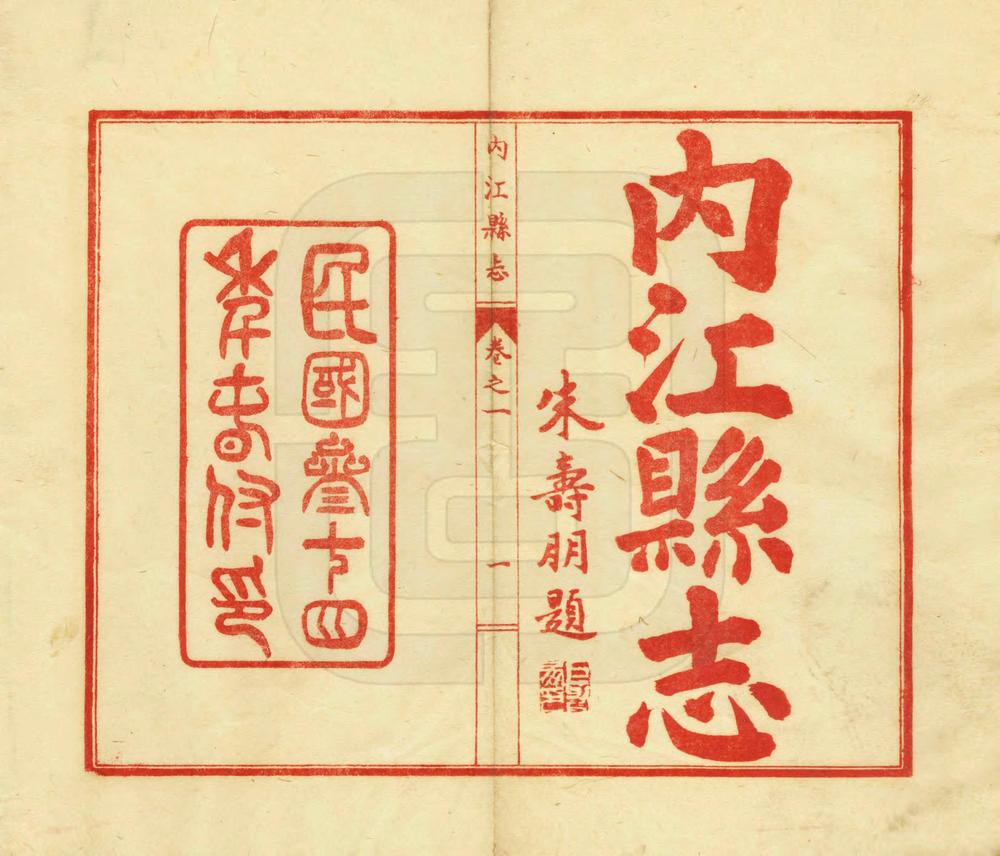 内江縣志
朱壽朋題
内江縣志
卷之一
一
民國參十四
秊春付印